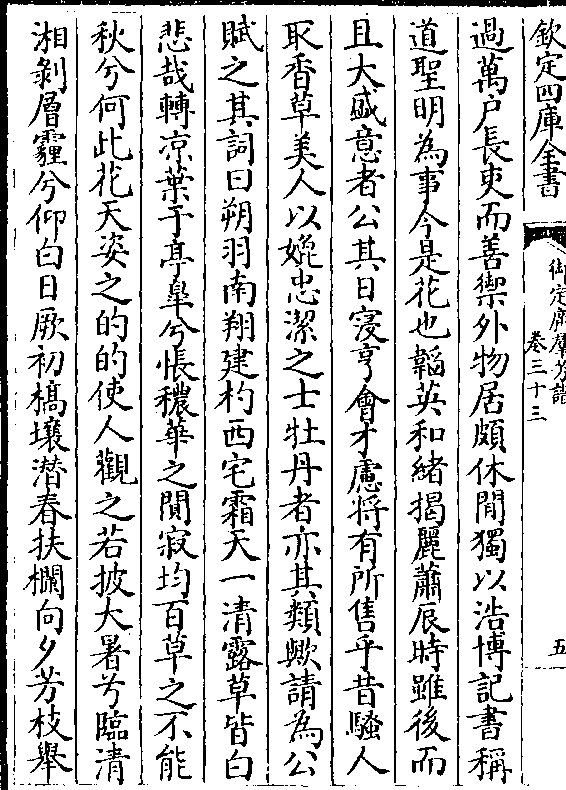 欽定四庫全書
御定廣羣芳譜
卷三十三
五
過萬戶長吏而善禦外物居頗休閒獨以浩博記書稱
道聖明為事今是花也韜英和緒揭麗蕭辰時雖後而
且大盛意者公其日寖亨會才慮將有所售乎昔騷人
取香草美人以媲忠潔之士牡丹者亦其類歟請為公
賦之其詞曰朔羽南翔建杓西宅霜天一清露草皆白
悲哉轉凉葉于亭臯兮悵穠華之閴寂均百草之不能
秋兮何此花天姿之的的使人觀之若披大暑兮臨清
湘剝層霾兮仰白日厥初槁壤潛春扶欄向夕芳枝舉